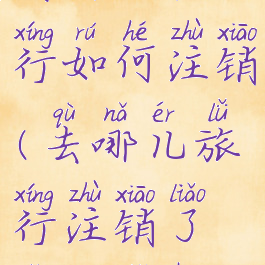 xíng rú hé zhù xiāo
行如何注销
qù nǎ ér lǚ
(去哪儿旅
xíng zhù xiāo liǎo
行注销了